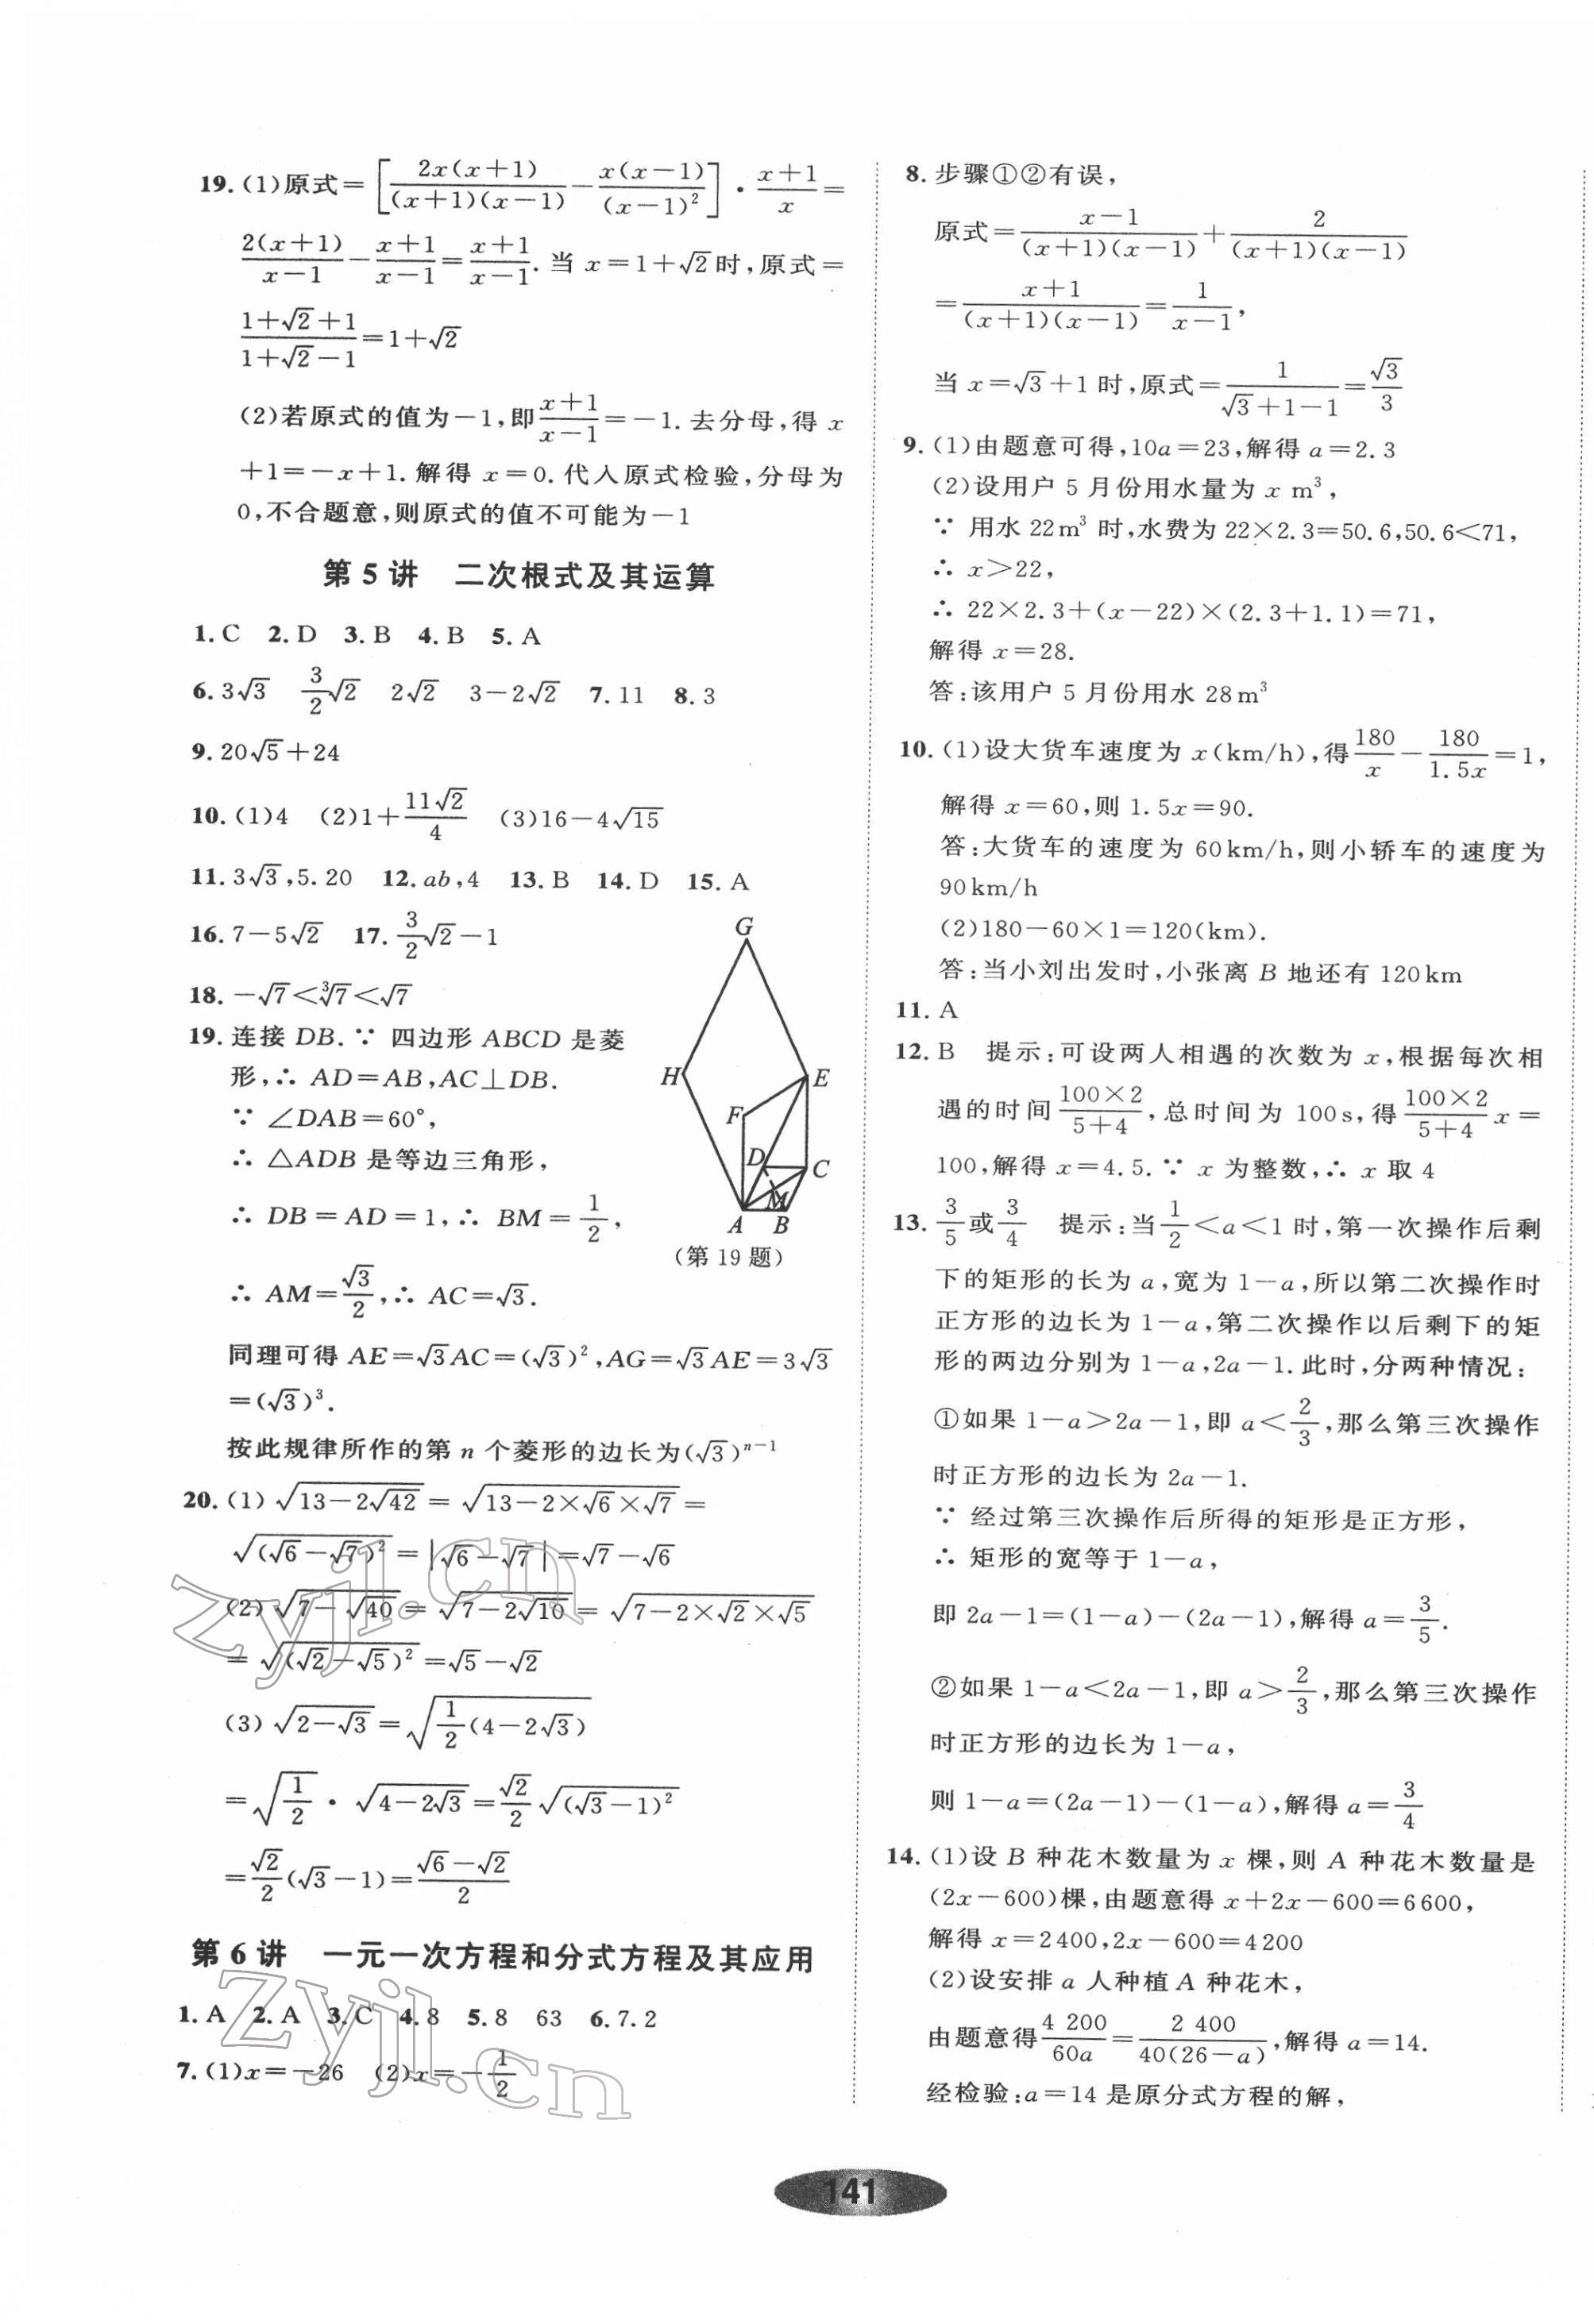 19.(1)原式=[2x(x+1)/((x+1)(x-1)) - x(x-1)/(x-1)²]·(x+1)/x=
2(x+1)/(x-1) - (x+1)/(x-1) = (x+1)/(x-1). 当 x=1+√2时,原式=
(1+√2+1)/(1+√2-1)=1+√2
(2)若原式的值为-1,即(x+1)/(x-1)=-1. 去分母,得 x
+1=-x+1. 解得 x=0. 代入原式检验,分母为
0,不合题意,则原式的值不可能为-1
第 5 讲 二次根式及其运算
1. C 2. D 3. B 4. B 5. A
6. 3√3 3/2√2 2√2 3-2√2 7. 11 8. 3
9. 20√5+24
10.(1)4 (2)1+11√2/4 (3)16-4√15
11. 3√3,5.20 12. ab,4 13. B 14. D 15. A
16. 7-5√2 17. 3/2√2-1
18. -√7<∛7<√7
19. 连接 DB. ∵ 四边形 ABCD 是菱
形,∴ AD=AB,AC⊥DB.
∵ ∠DAB=60°,
∴ △ADB 是等边三角形,
∴ DB=AD=1,∴ BM=1/2,
∴ AM=√3/2,∴ AC=√3.
G
H
E
F
D
C
M
A B
(第 19 题)
同理可得 AE=√3AC=(√3)²,AG=√3AE=3√3
=(√3)³.
按此规律所作的第 n 个菱形的边长为(√3)ⁿ⁻¹
20.(1)√(13-2√42)=√(13-2×√6×√7)=
√((√6-√7)²)=|√6-√7|=√7-√6
(2)√(7-√40)=√(7-2√10)=√(7-2×√2×√5)
=√((√2-√5)²)=√5-√2
(3)√(2-√3)=√(1/2(4-2√3))
=√(1/2)·√(4-2√3)=√2/2√((√3-1)²)
=√2/2(√3-1)=(√6-√2)/2
第 6 讲 一元一次方程和分式方程及其应用
1. A 2. A 3. C 4. 8 5. 8 63 6. 7.2
7.(1)x=-26 (2)x=-1/2
8. 步骤①②有误,
原式=(x-1)/((x+1)(x-1))+2/((x+1)(x-1))
=(x+1)/((x+1)(x-1))=1/(x-1),
当 x=√3+1 时,原式=1/(√3+1-1)=√3/3
9.(1)由题意可得,10a=23,解得 a=2.3
(2)设用户 5 月份用水量为 x m³,
∵ 用水 22m³ 时,水费为 22×2.3=50.6,50.6<71,
∴ x>22,
∴ 22×2.3+(x-22)×(2.3+1.1)=71,
解得 x=28.
答:该用户 5 月份用水 28m³
10.(1)设大货车速度为 x(km/h),得180/x-180/1.5x=1,
解得 x=60,则 1.5x=90.
答:大货车的速度为 60km/h,则小轿车的速度为
90km/h
(2)180-60×1=120(km).
答:当小刘出发时,小张离 B 地还有 120km
11. A
12. B 提示:可设两人相遇的次数为 x,根据每次相
遇的时间(100×2)/(5+4),总时间为 100s,得(100×2)/(5+4)x=
100,解得 x=4.5. ∵ x 为整数,∴ x 取 4
13. 3/5或3/4 提示:当1/2<a<1时,第一次操作后剩
下的矩形的长为 a,宽为 1-a,所以第二次操作时
正方形的边长为 1-a,第二次操作以后剩下的矩
形的两边分别为 1-a,2a-1. 此时,分两种情况:
①如果 1-a>2a-1,即 a<2/3,那么第三次操作
时正方形的边长为 2a-1.
∵ 经过第三次操作后所得的矩形是正方形,
∴ 矩形的宽等于 1-a,
即 2a-1=(1-a)-(2a-1),解得 a=3/5.
②如果 1-a<2a-1,即 a>2/3,那么第三次操作
时正方形的边长为 1-a,
则 1-a=(2a-1)-(1-a),解得 a=3/4
14.(1)设 B 种花木数量为 x 棵,则 A 种花木数量是
(2x-600)棵,由题意得 x+2x-600=6600,
解得 x=2400,2x-600=4200
(2)设安排 a 人种植 A 种花木,
由题意得4 200/60a=2 400/40(26-a),解得 a=14.
经检验:a=14 是原分式方程的解,
141
zyjl.cn
zyjl.cn